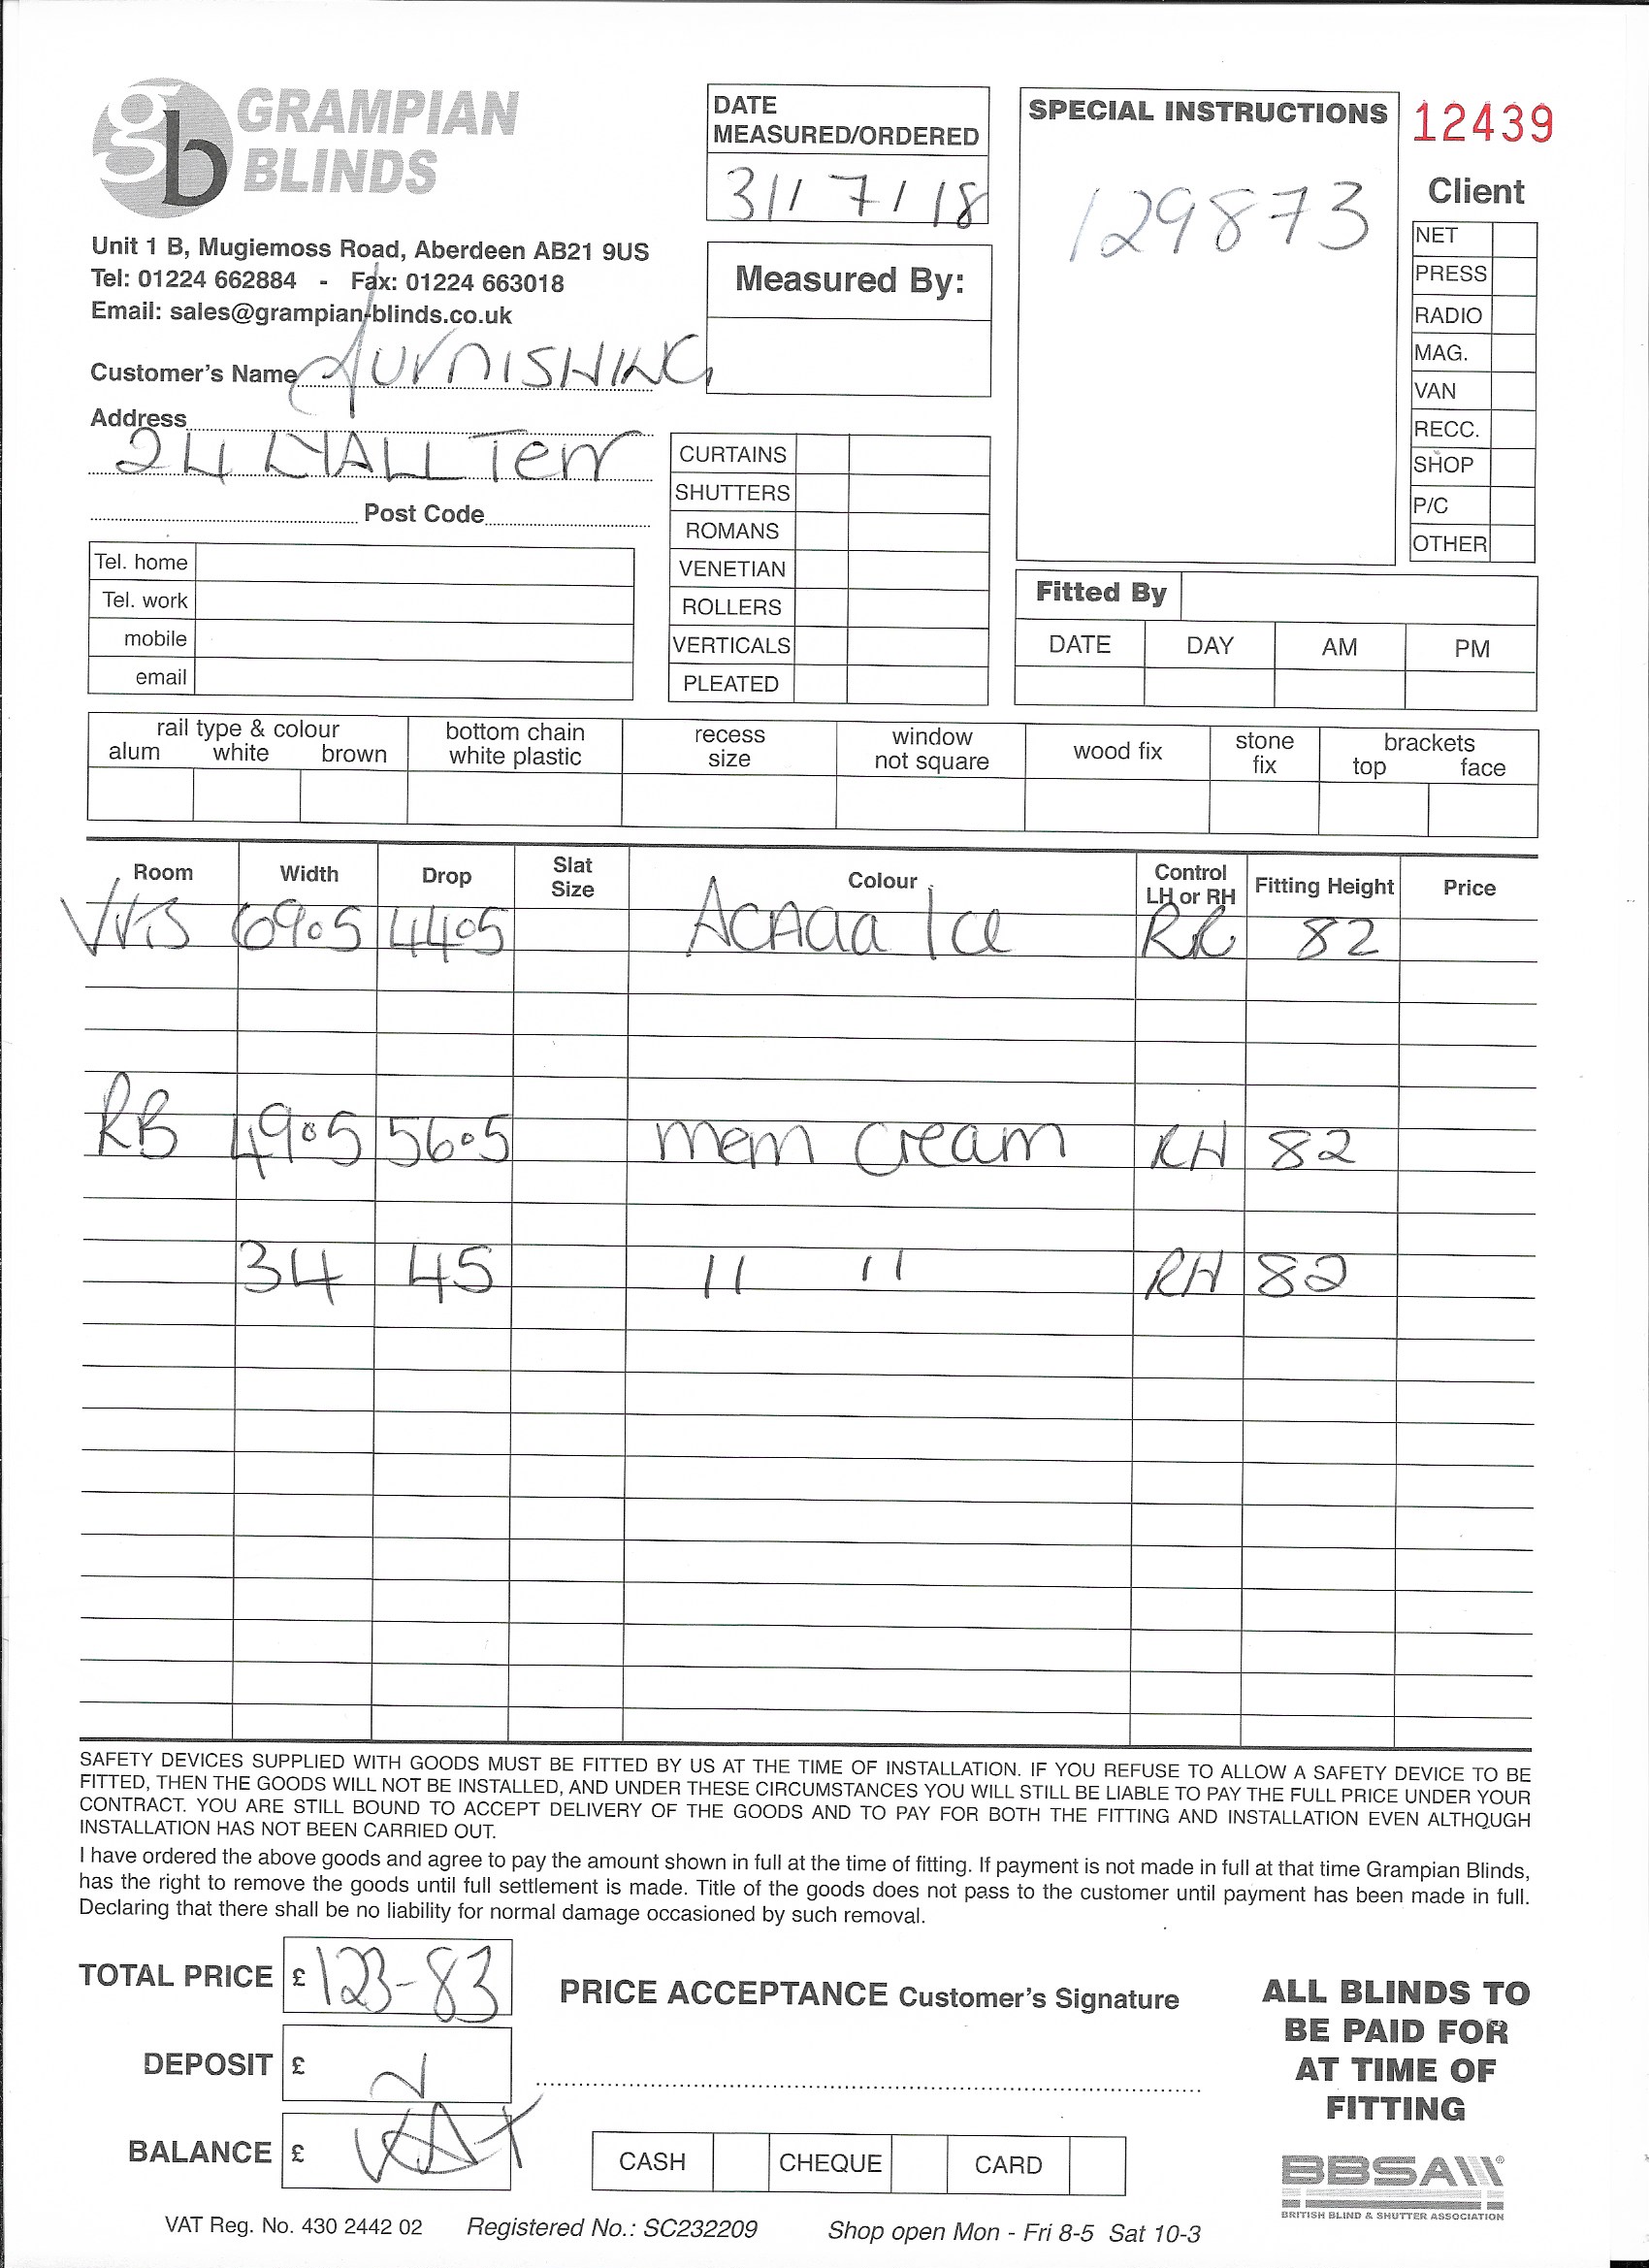 gb GRAMPIAN BLINDS
Unit 1 B, Mugiemoss Road, Aberdeen AB21 9US
Tel: 01224 662884 - Fax: 01224 663018
Email: sales@grampian-blinds.co.uk
Customer's Name FURNISHING
Address
24 LYALL Terr
Post Code
Tel. home
Tel. work
mobile
email
DATE
MEASURED/ORDERED
31/7/18
Measured By:
CURTAINS
SHUTTERS
ROMANS
VENETIAN
ROLLERS
VERTICALS
PLEATED
SPECIAL INSTRUCTIONS
129873
12439
Client
NET
PRESS
RADIO
MAG.
VAN
RECC.
SHOP
P/C
OTHER
Fitted By
DATE DAY AM PM
rail type & colour
alum white brown
bottom chain
white plastic
recess
size
window
not square
wood fix
stone
fix
brackets
top face
Room Width Drop Slat Size Colour Control LH or RH Fitting Height Price
69.5 44.5 Acacia Ice 82
RB 49.5 56.5 mem cream RH 82
34 45 " " RH 82
SAFETY DEVICES SUPPLIED WITH GOODS MUST BE FITTED BY US AT THE TIME OF INSTALLATION. IF YOU REFUSE TO ALLOW A SAFETY DEVICE TO BE
FITTED, THEN THE GOODS WILL NOT BE INSTALLED, AND UNDER THESE CIRCUMSTANCES YOU WILL STILL BE LIABLE TO PAY THE FULL PRICE UNDER YOUR
CONTRACT. YOU ARE STILL BOUND TO ACCEPT DELIVERY OF THE GOODS AND TO PAY FOR BOTH THE FITTING AND INSTALLATION EVEN ALTHOUGH
INSTALLATION HAS NOT BEEN CARRIED OUT.
I have ordered the above goods and agree to pay the amount shown in full at the time of fitting. If payment is not made in full at that time Grampian Blinds,
has the right to remove the goods until full settlement is made. Title of the goods does not pass to the customer until payment has been made in full.
Declaring that there shall be no liability for normal damage occasioned by such removal.
TOTAL PRICE £ 123-83
DEPOSIT £
BALANCE £ VAT
PRICE ACCEPTANCE Customer's Signature
CASH CHEQUE CARD
ALL BLINDS TO
BE PAID FOR
AT TIME OF
FITTING
BBSA
BRITISH BLIND & SHUTTER ASSOCIATION
VAT Reg. No. 430 2442 02 Registered No.: SC232209 Shop open Mon - Fri 8-5 Sat 10-3